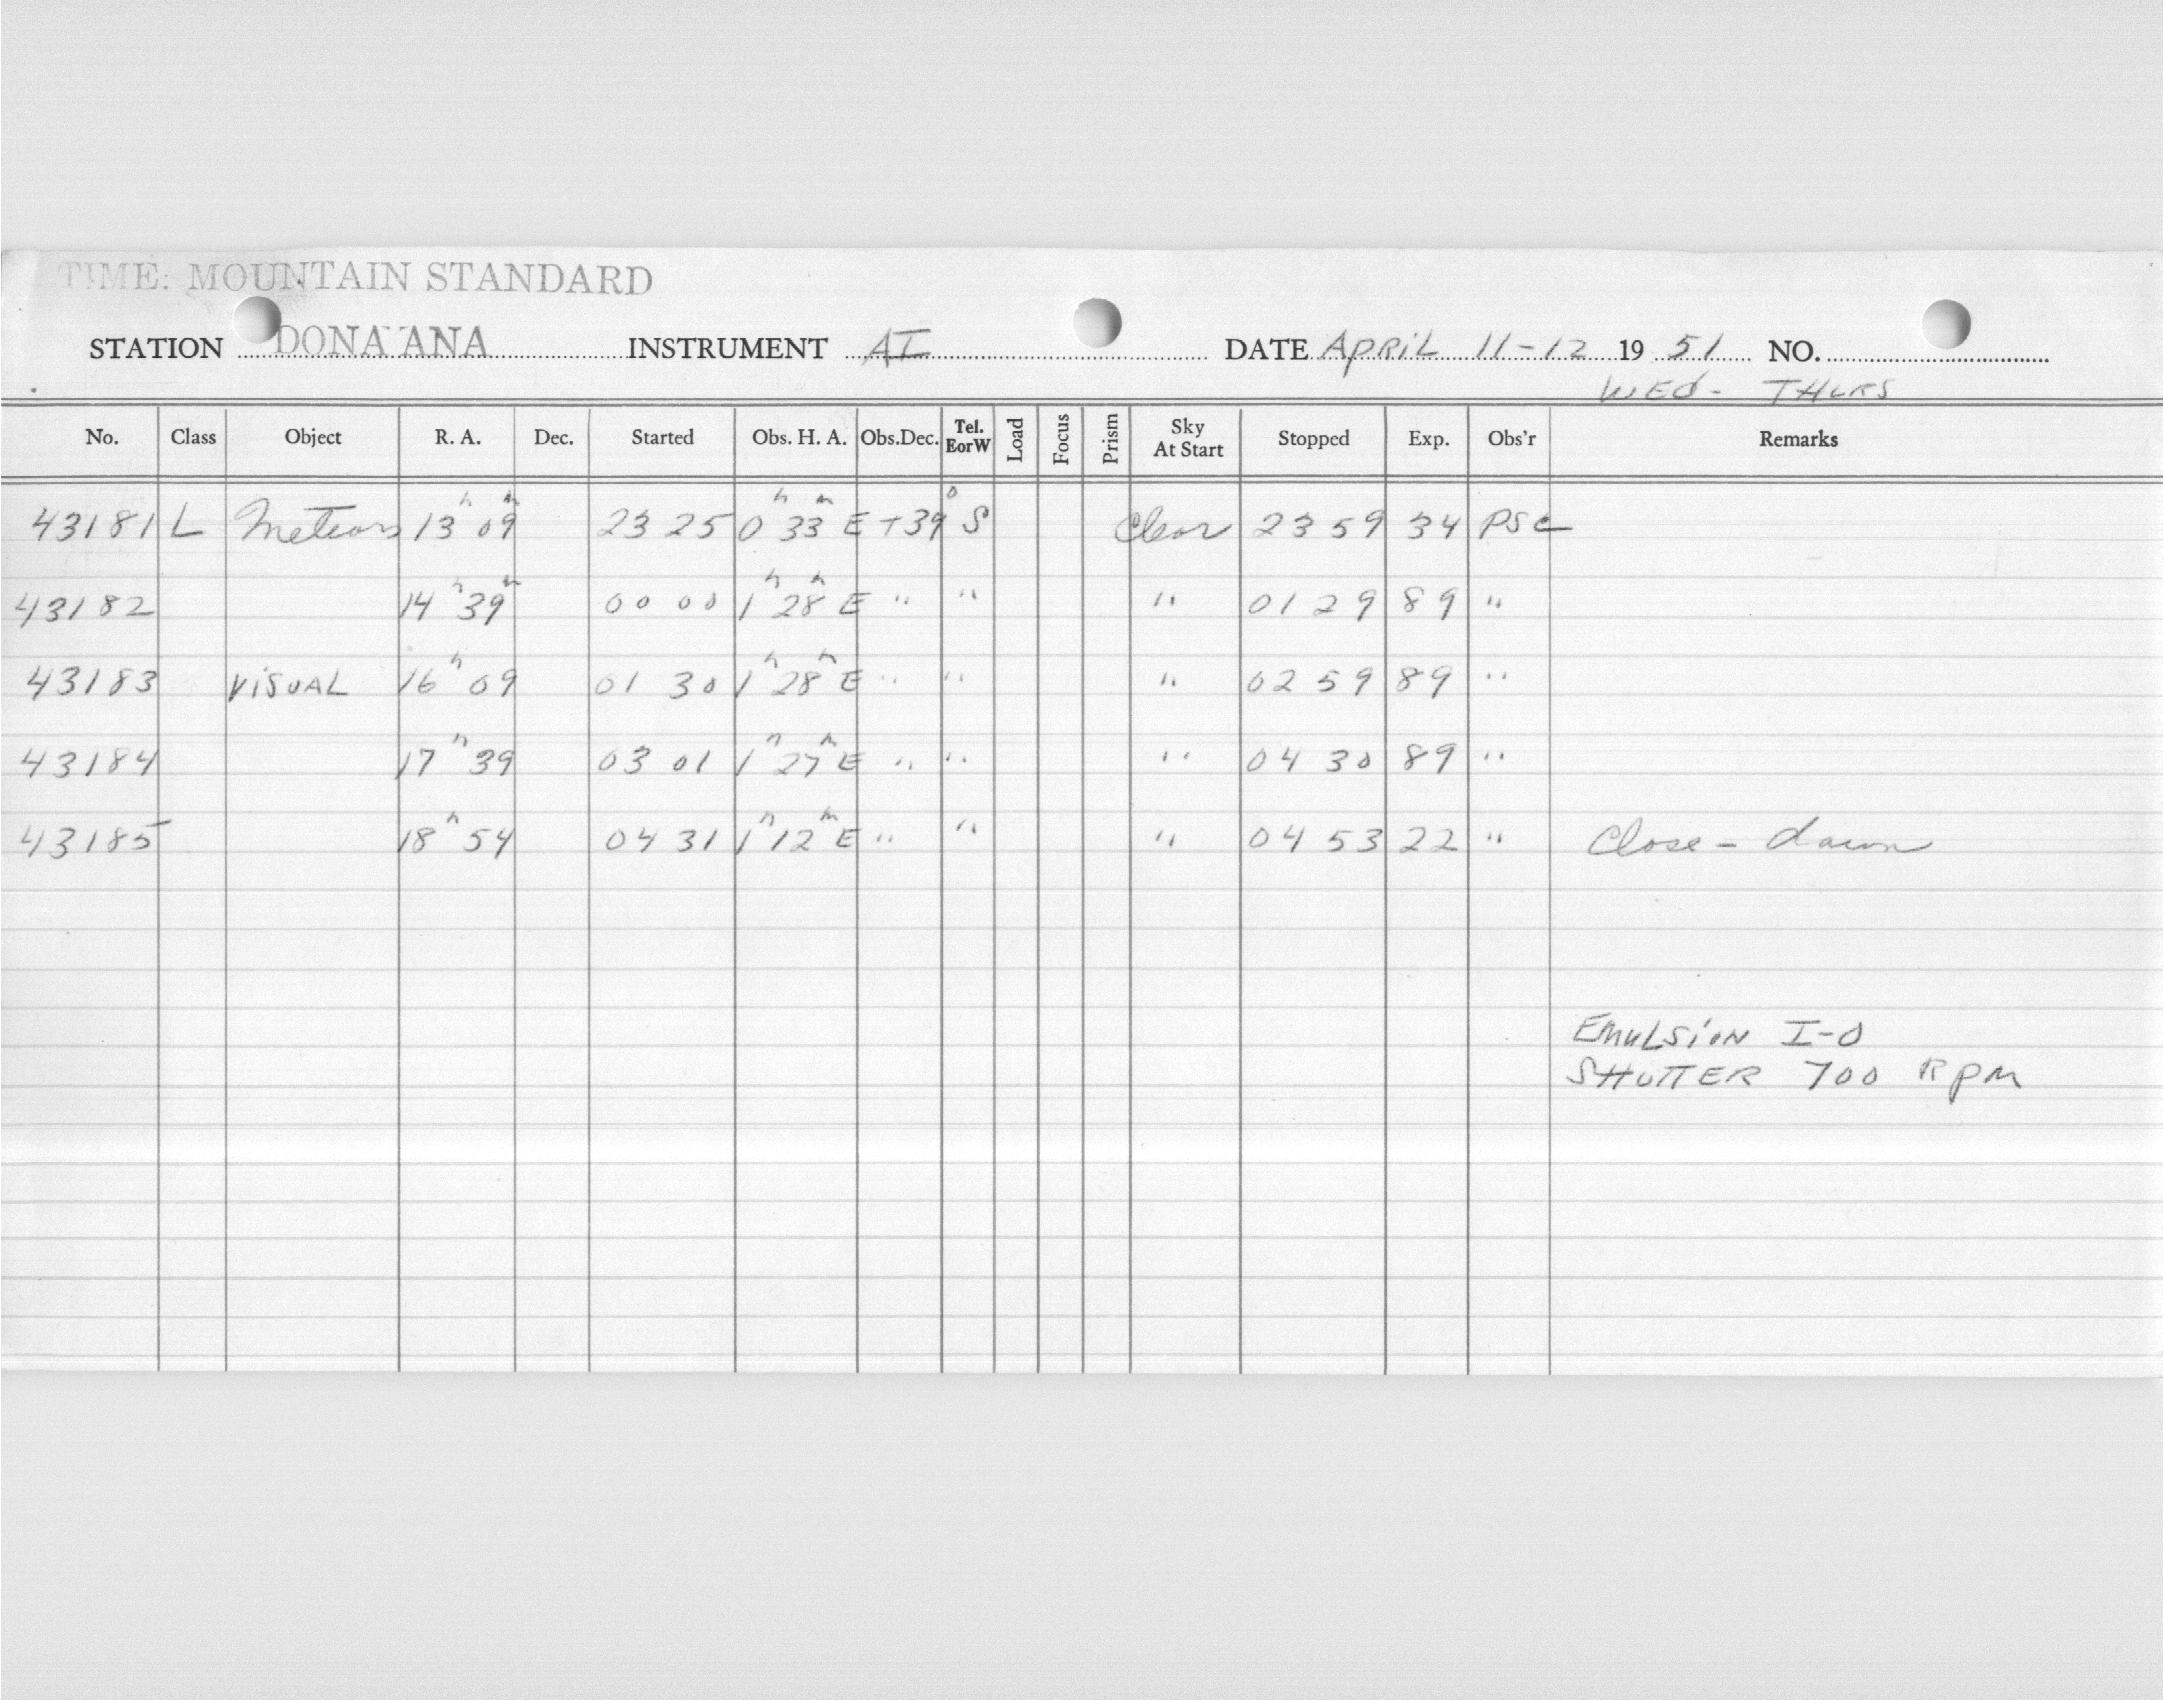 TIME: MOUNTAIN STANDARD
STATION DONA ANA INSTRUMENT AI DATE APRIL 11-12 19 51 NO.
WED - THURS
No. Class Object R. A. Dec. Started Obs. H. A. Obs.Dec. Tel. EorW Load Focus Prism Sky At Start Stopped Exp. Obs'r Remarks
43181 L Meteors 13h 09m 23 25 0h 33m E +39° S Clear 23 59 34 PSC
43182 14h 39m 00 00 1h 28m E " " " 01 29 89 "
43183 VISUAL 16h 09 01 30 1h 28m E " " " 02 59 89 "
43184 17h 39 03 01 1h 27m E " " " 04 30 89 "
43185 18h 54 04 31 1h 12m E " " " 04 53 22 " Close - dawn
EMULSION I-O
SHUTTER 700 RPM